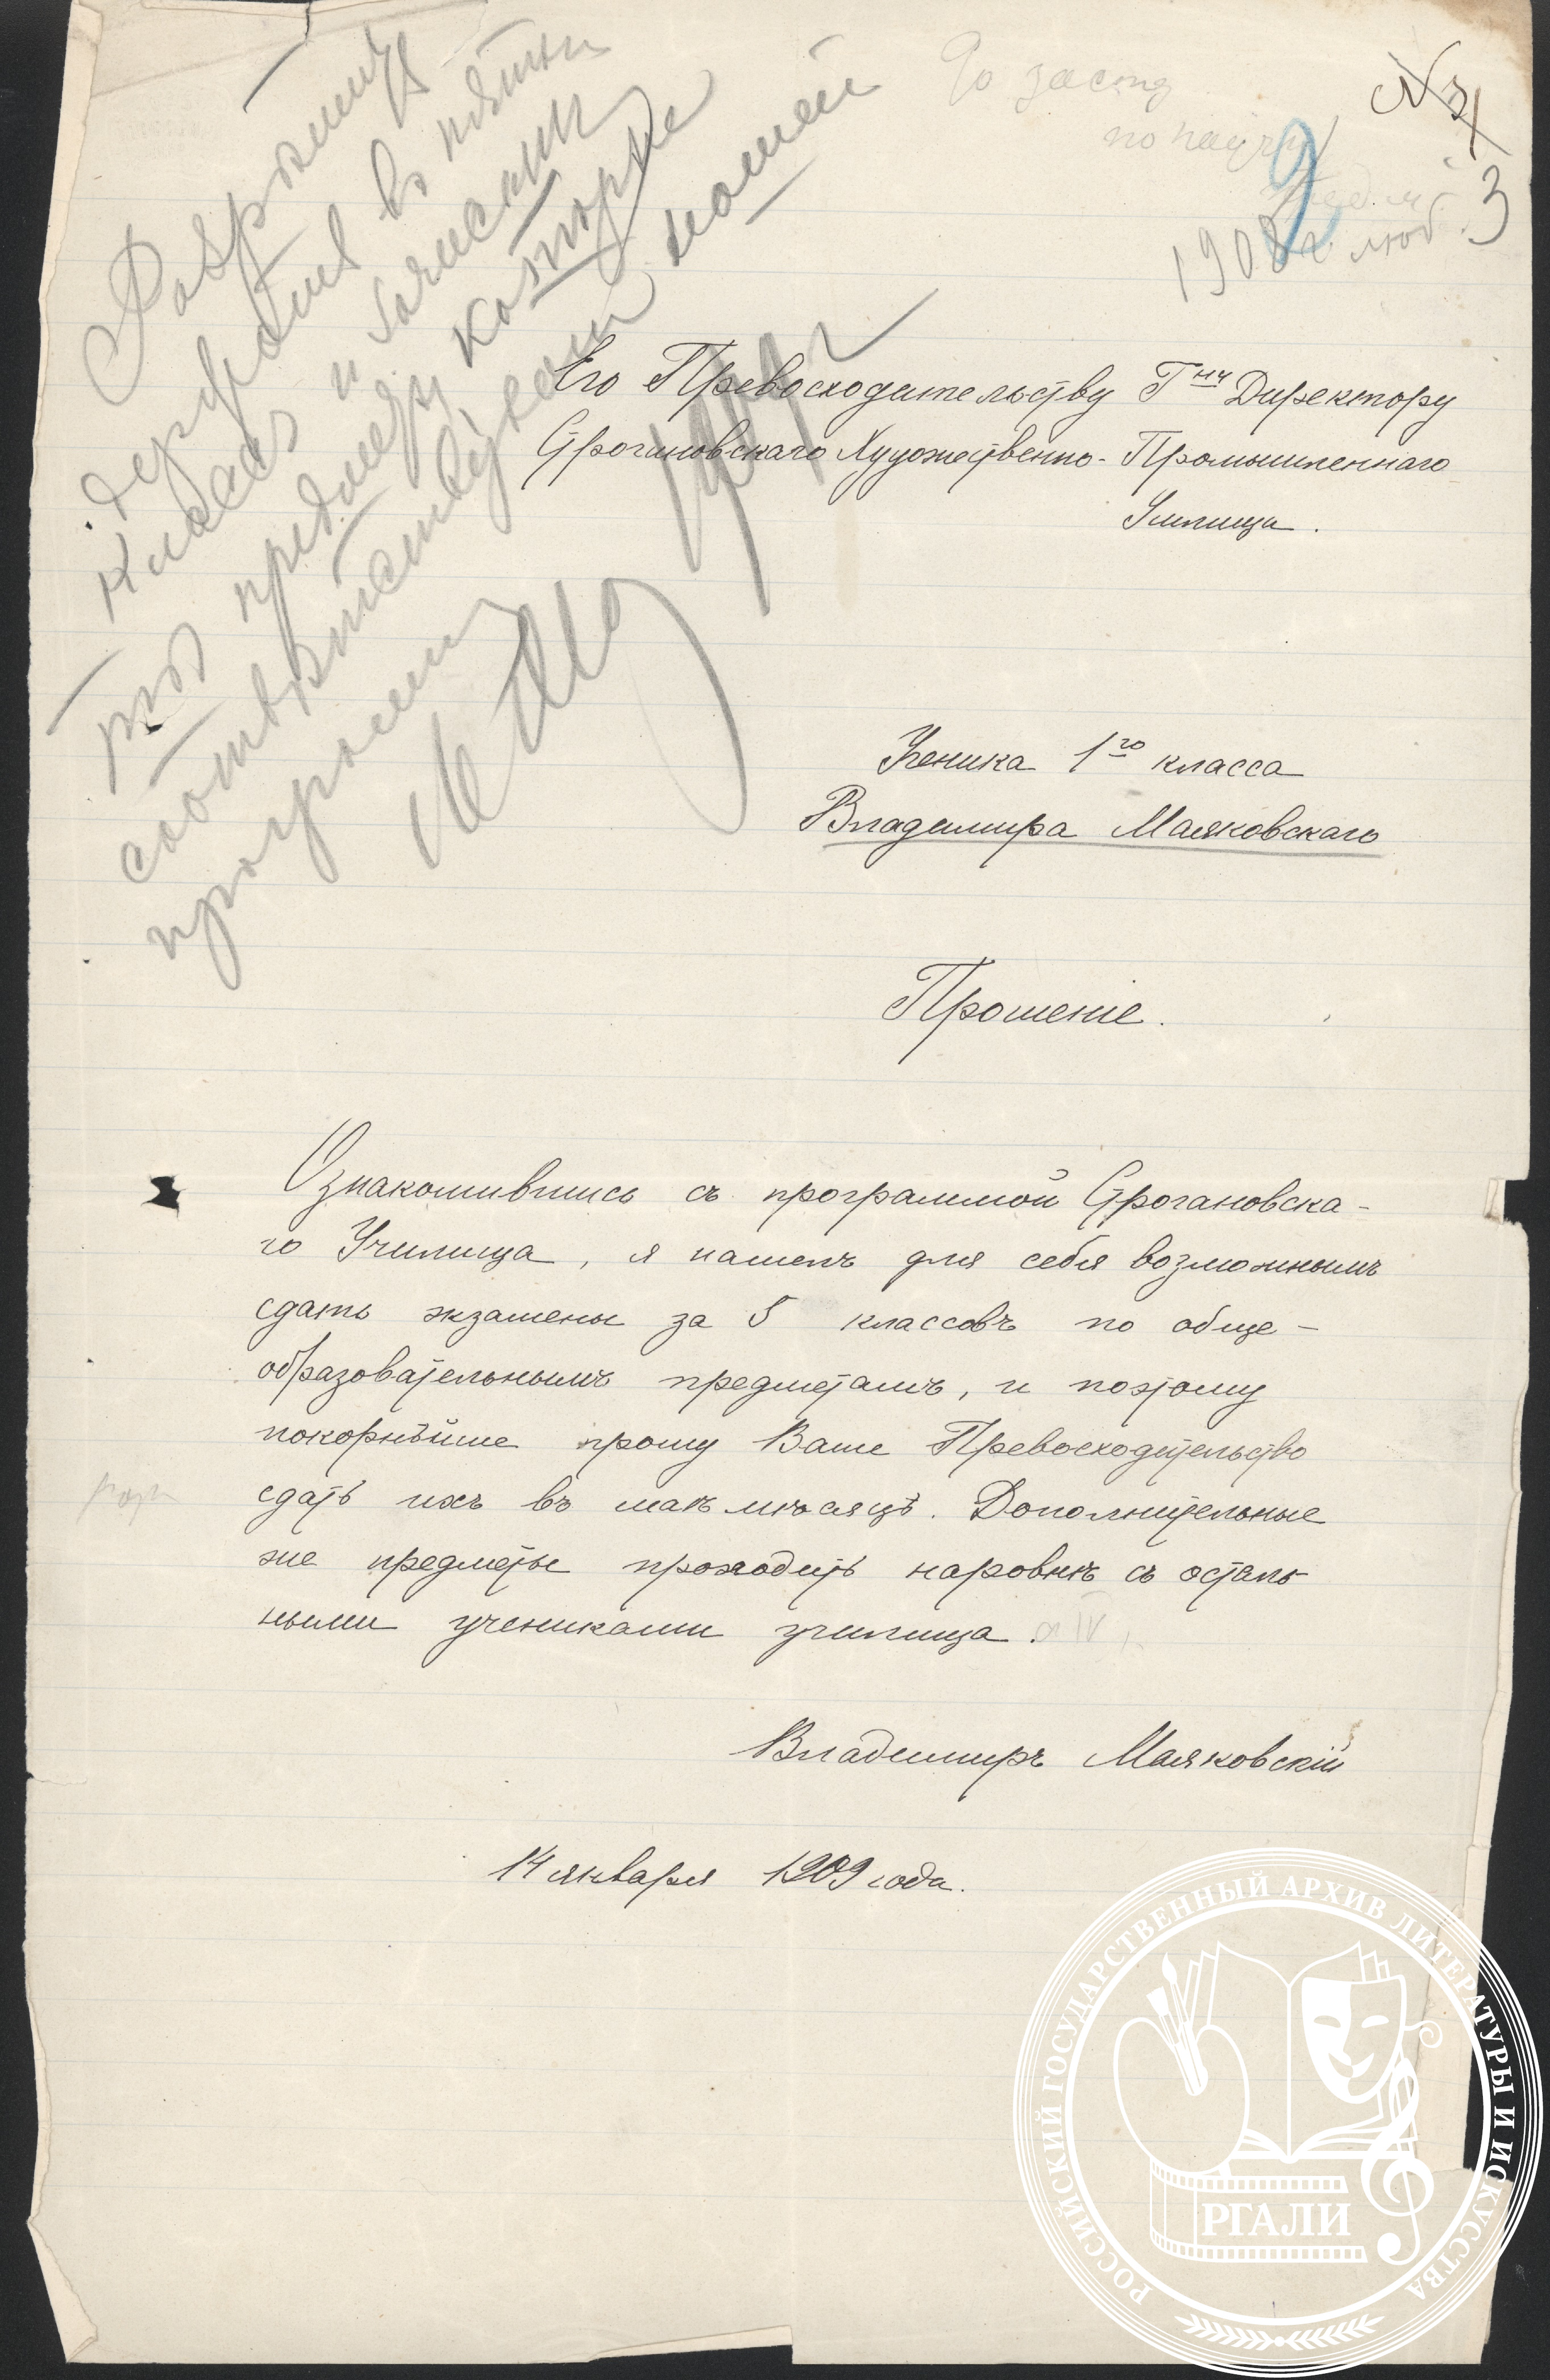 Разрѣшить
держать въ пятый
классъ и зачислить
по
1908 г.
2
3
Его Превосходительству Г-ну Директору
Строгановскаго Художественно-Промышленнаго
Училища.
Ученика 1го класса
Владимира Маяковскаго
Прошенiе.
Ознакомившись съ программой Строгановска-
го Училища, я нашелъ для себя возможнымъ
сдать экзамены за 5 классовъ по обще-
образовательнымъ предметамъ, и поэтому
покорнѣйше прошу Ваше Превосходительство
сдать ихъ въ маѣ мѣсяцѣ. Дополнительные
же предметы проходить наровнѣ съ осталь
ными учениками училища.
Владимиръ Маяковскiй
14 января 1909 года.
РОССИЙСКИЙ ГОСУДАРСТВЕННЫЙ АРХИВ ЛИТЕРАТУРЫ И ИСКУССТВА
РГАЛИ